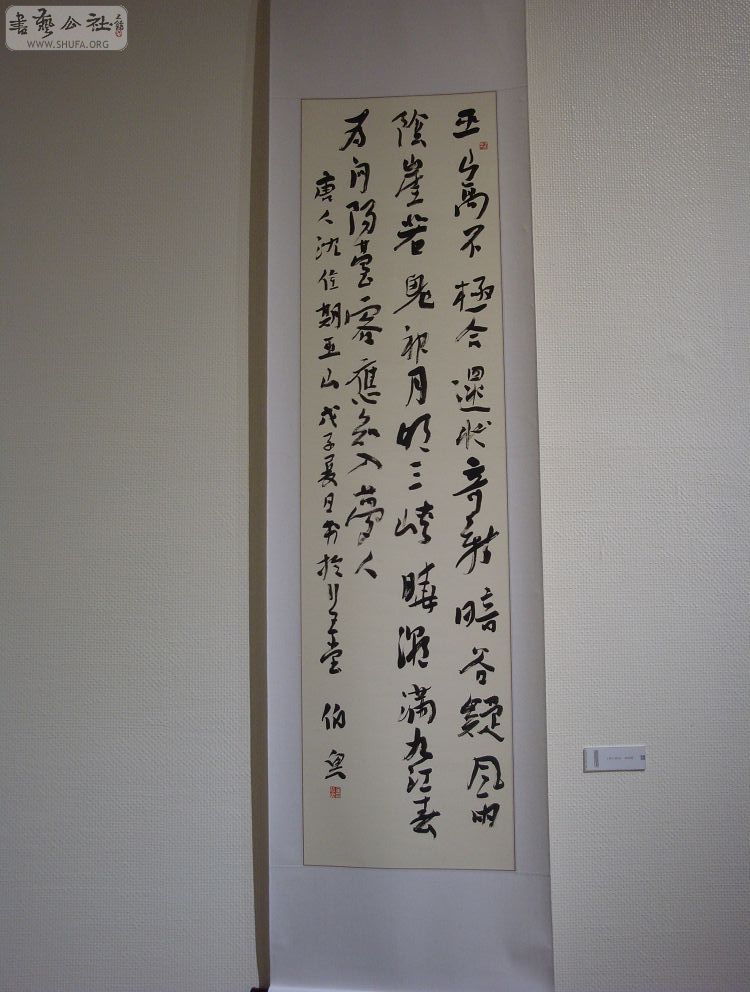 書藝公社
WWW.SHUFA.ORG
巫山高不極合遝狀奇新暗谷疑風雨
陰崖若鬼神月明三峽曙潮滿九江春
為問陽臺客應知入夢人
唐人沈佺期巫山 戊子夏日書於堂 伯